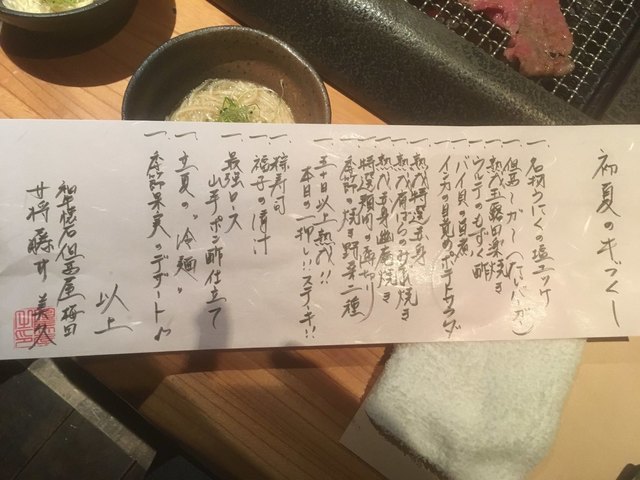 初夏の尽くし
一、名物うにくの塩ユッケ
一、但馬ーガー(たじバーガー)
一、熟成玉露田楽焼き
一、ウルテのもずく酢
一、バイ貝の旨煮
一、イチカの目覚めポテトサラダ
一、熟成特選赤身
一、熟成肩ばらのみぞれ焼き
一、熟成赤身幽庵焼き
一、特選頬肉の
一、季節の焼き野菜二種
一、五十日以上熟成!!
本日の一押し!!ステーキ!!
一、粽寿司
一、福子の清汁
一、最強ロース
山芋ポン酢仕立て
一、立夏の"冷麺"
一、季節果実のデザート♪
以上
和牛懐石但馬屋梅田
女将 藤井 美久